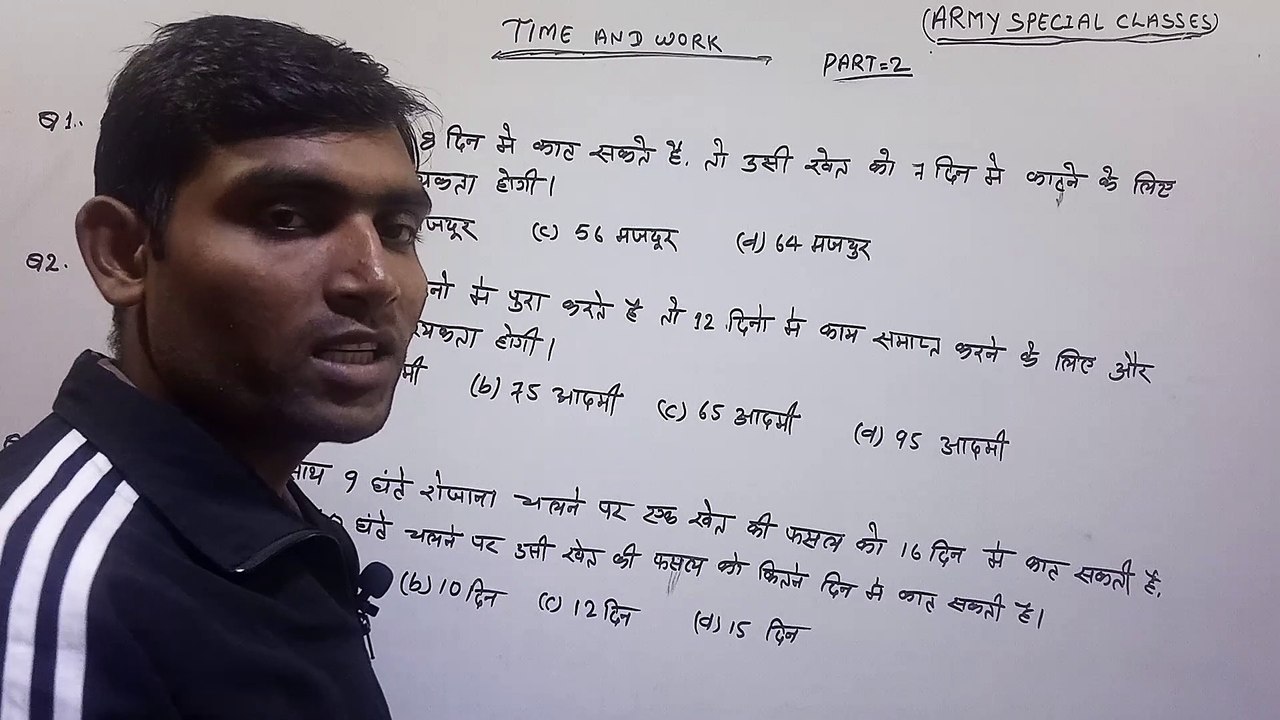 TIME AND WORK
(ARMY SPECIAL CLASSES)
PART=2
Q1.
8 दिन मे काट सकते है. तो उसी खेत को 7 दिन मे काटने के लिए
होगी।
(c) 56 मजदूर (d) 64 मजदुर
Q2.
मे पुरा करते है तो 12 दिनो मे काम समाप्त करने के लिए और
होगी।
(b) 75 आदमी (c) 65 आदमी (d) 95 आदमी
साथ 9 घंटे रोजाना चलने पर एक खेत की फसल को 16 दिन मे काट सकती है.
घंटे चलने पर उसी खेत की फसल को कितने दिन मे काट सकती है।
(b) 10 दिन (c) 12 दिन (d) 15 दिन